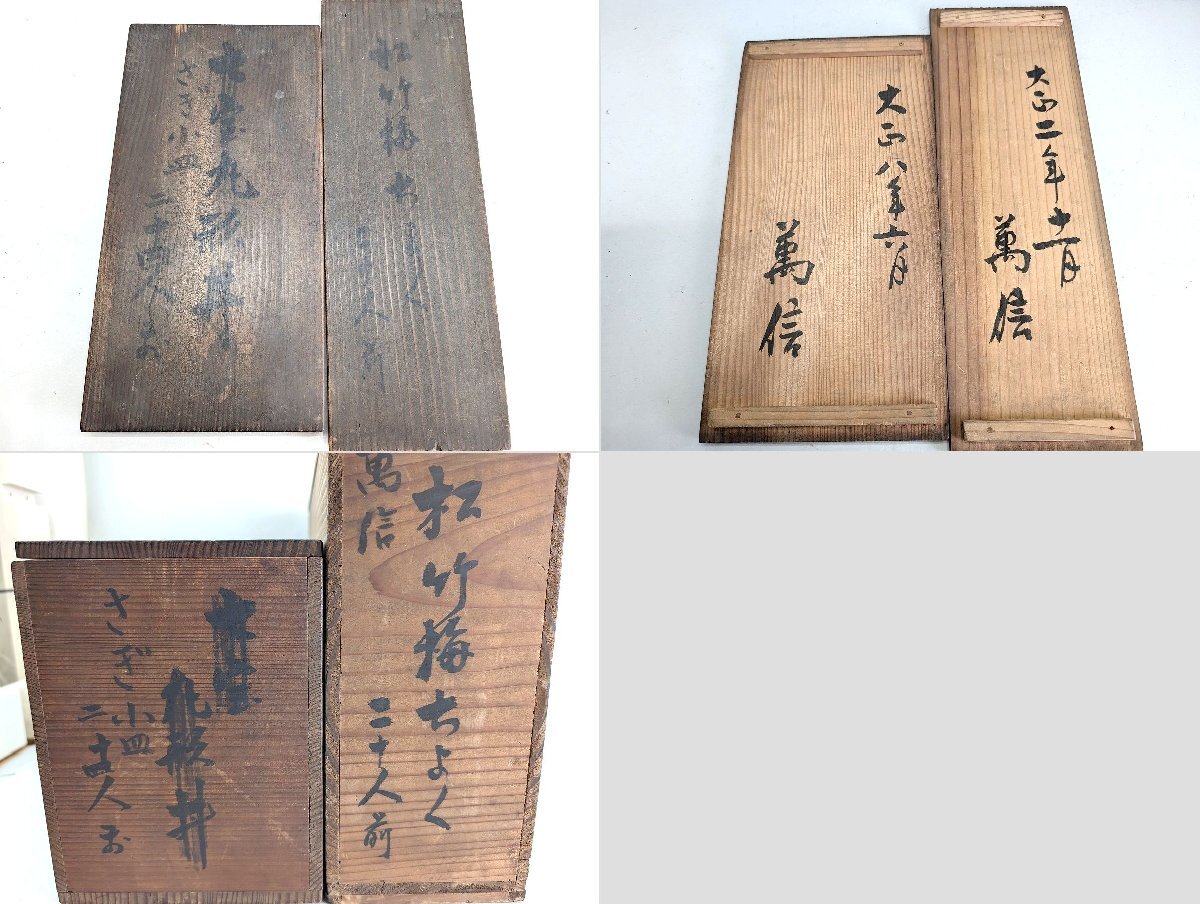 さぎ小皿
二十四人前
松竹梅ちょく
二十人前
大正二年十一月
萬信
大正八年六月
萬信
松竹梅ちよく
二十人前
萬信
さぎ小皿
人前